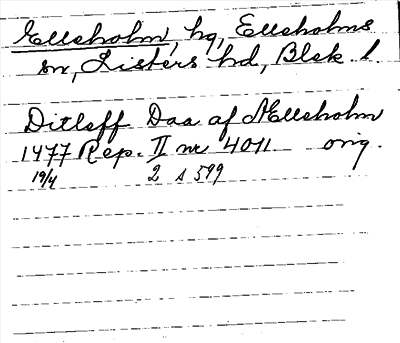 Ellsholm, hg, Ellsholms
sn, Listers hd, Blek. l.
Ditleff Daa af Mellsholm
1477 Rep. II nr 4011 orig.
19/4 2 s 599